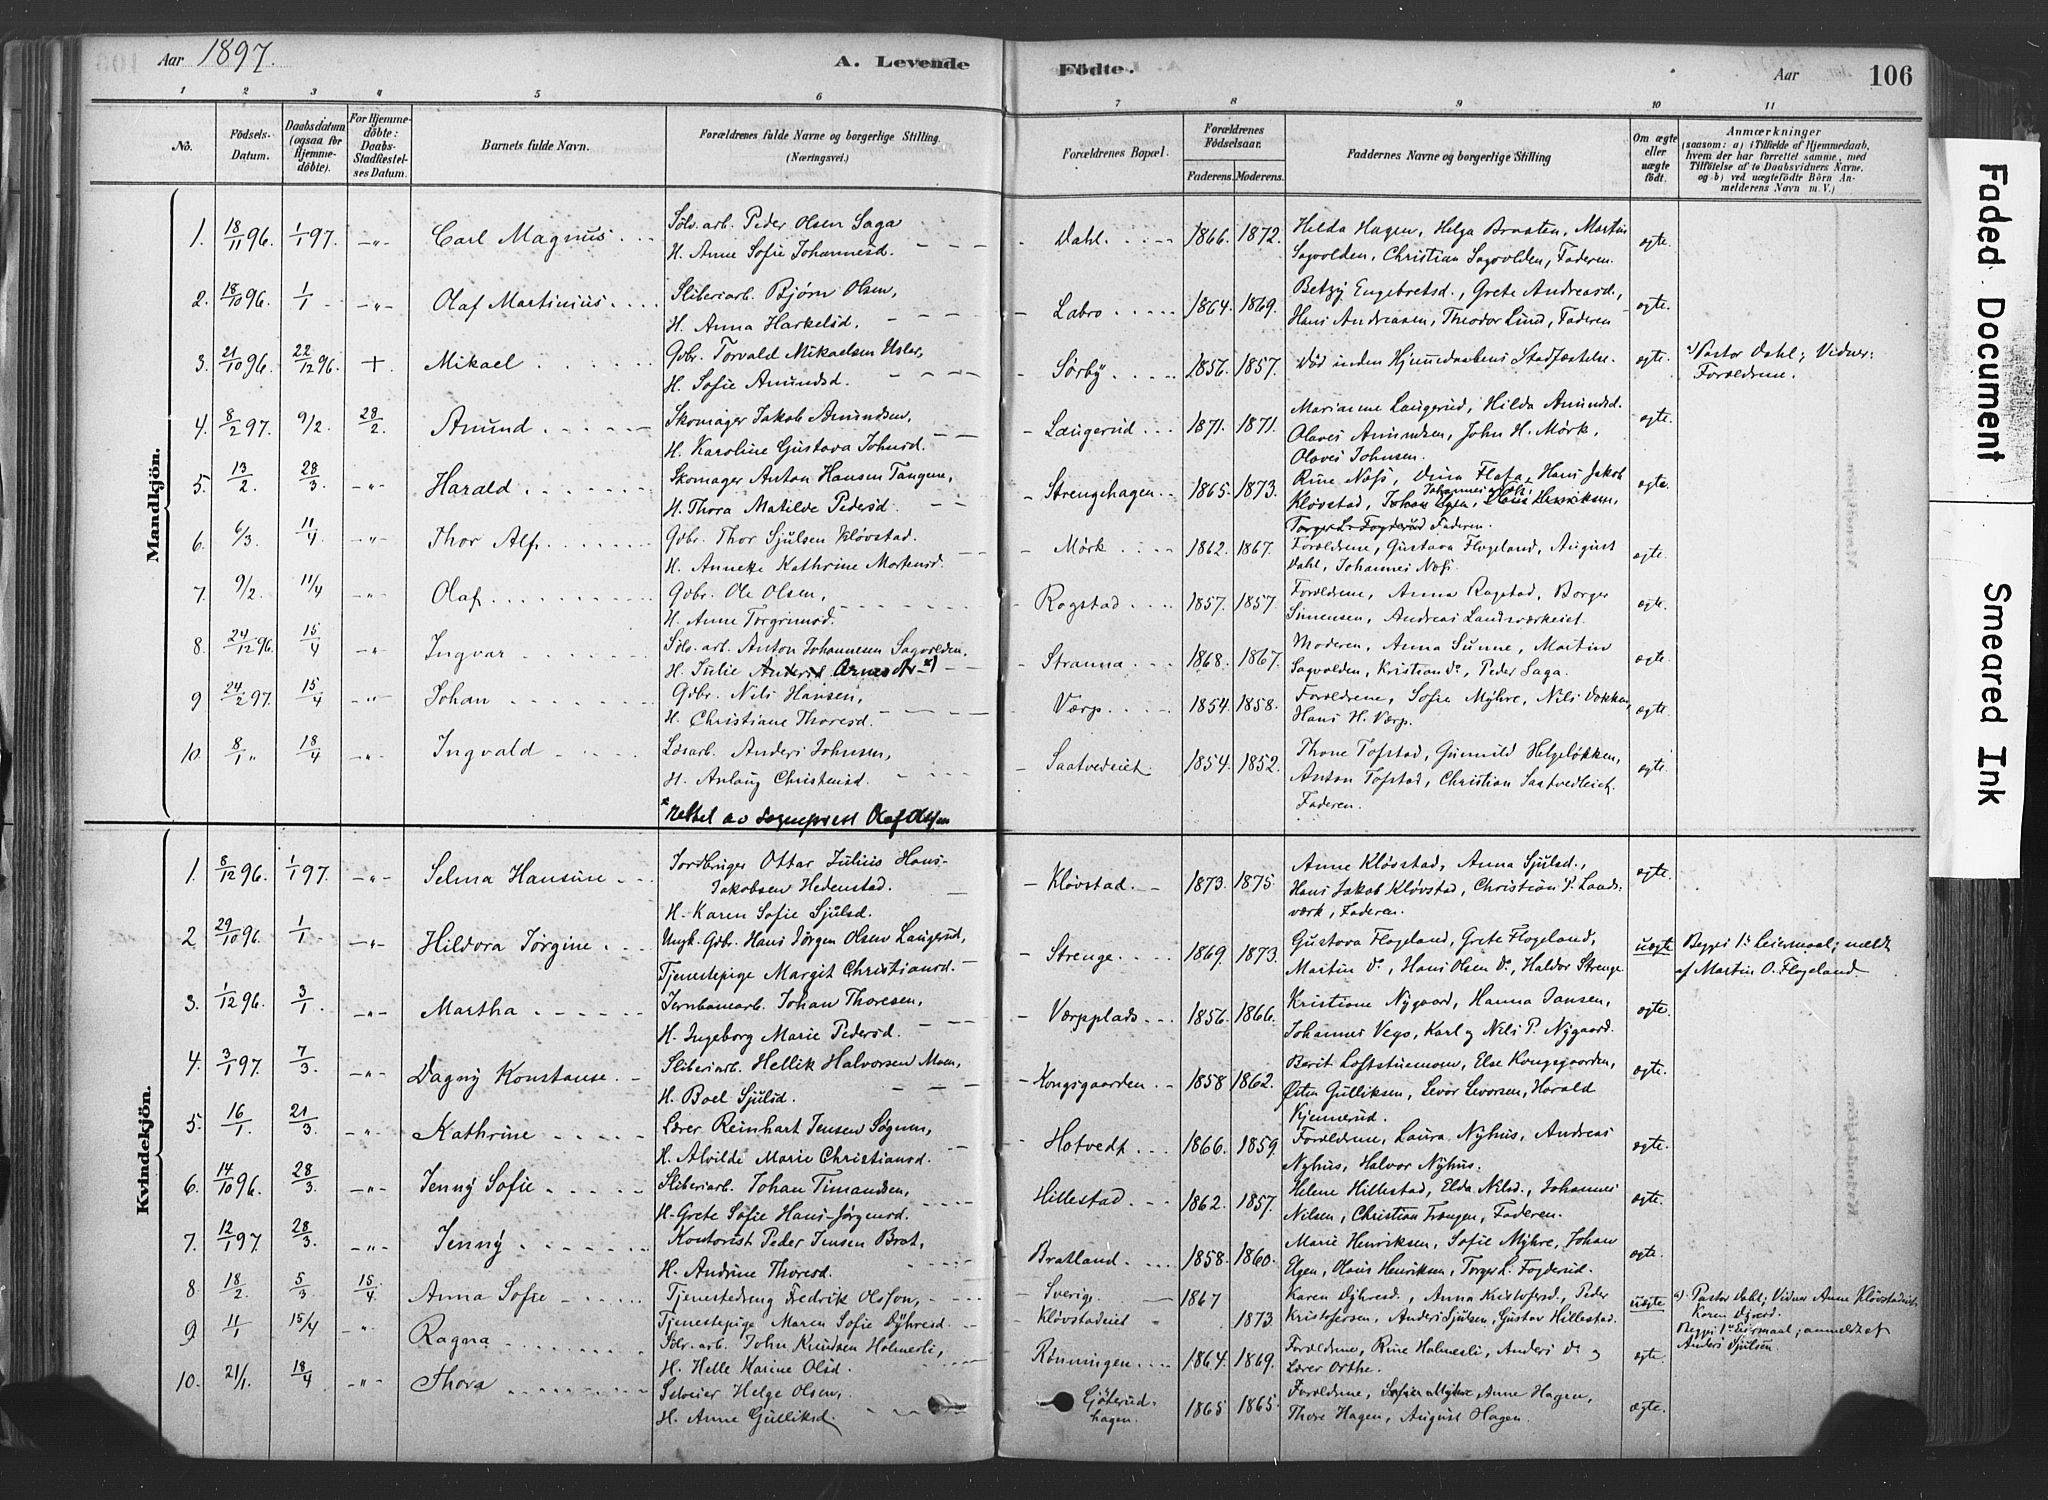 Aar 1897. A. Levende Födte. Aar 106
1 2 3 4 5 6 7 8 9 10 11
No.
Födsels-
Datum.
Daabsdatum
(ogsaa for
Hjemme-
döbte).
For Hjemme-
döbte:
Daabs-
Stadfæstel-
ses Datum.
Barnets fulde Navn.
Forældrenes fulde Navne og borgerlige Stilling.
(Næringsvei.)
Forældrenes Bopæl.
Forældrenes
Födselsaar.
Faderens. Moderens.
Faddernes Navne og borgerlige Stilling
Om ægte
eller
uægte
födt.
Anmærkninger
(saasom: a) i Tilfælde af Hjemmedaab,
hvem der har forrettet samme, med
Tilföielse af to Daabsvidners Navne,
og b) ved uægtefödte Börn An-
melderens Navn m. V.)
Mandkjön.
1. 18/11 96. 1/1 97. -„- Carl Magnus
Sölv. arb. Peder Olsen Saga
H. Anne Sofie Johannesd.
Dahl. 1866. 1872.
Hilda Hagen, Helga Braaten, Martin
Sagvolden, Christian Sagvolden, Faderen.
ægte.
2. 18/10 96. 1/1 -„- Olaf Martinius.
Sliberiarb. Bjørn Olsen,
H. Anna Harkelsd,
Labro 1864. 1869.
Betzy Engebretsd., Grete Andreasd.,
Hans Andreasen, Theodor Lund, Faderen
ægte.
3. 21/10 96. 22/12 96. + Mikael
Gbr. Torvald Mikaelsen Usler,
H. Sofie Amundsd.
Sørby. 1856. 1857.
Død inden Hjemmedaabens Stadfæstelse.
ægte.
a) Pastor Dahl; Vidner:
Forældrene.
4. 8/2 97. 9/2. 28/2. Amund
Skomager Jakob Amundsen,
H. Karoline Gustava Johnsd.
Langerud 1871. 1871.
Marianne Langerud, Hilda Amundsd.
Olaves Amundsen, John H. Mörk,
Olaves Johnsen.
ægte.
5. 13/2. 28/3 -„- Harald
Skomager Anton Hansen Tangene,
H. Thora Matilde Pedersd.
Strengehagen 1865. 1873.
Rine Næss, Dina Flata, Hans Jakob
Kløvstad, Johan Elgen, Olaus Henriksen,
Torger L. Fogderud Faderen.
ægte
6. 6/3. 11/4 -„- Thor Alf.
Gbr. Thor Sjulsen Kløvstad,
H. Anneke Kathrine Mortensd.
Mørk 1862. 1867.
Forældrene, Gustava Flogeland, August
Dahl, Johannes Næss.
ægte.
7. 9/2. 11/4 -„- Olaf
Gbr. Ole Olsen,
H. Anne Torgrimsd.
Rogstad. 1857. 1857.
Forældrene, Anna Rogstad, Borger
Simensen, Andreas Landsværkeiet.
ægte.
8. 24/12 96. 15/4 -„- Ingvar
Sölv. arb. Anton Johannesen Sagvolden,
H. Julie
Stranna 1868. 1867.
Moderen, Anna Sunne, Martin
Sagvolden, Kristian do, Peder Saga.
ægte.
9 24/2 97. 15/4 -„- Johan
Gbr. Nils Hansen,
H. Christiane Thoresd.
Værp. 1854. 1858.
Forældrene, Sofie Myhre, Nils Dokken,
Hans H. Værp.
ægte.
10. 8/1 „ 18/4 -„- Ingvald
Løsarb. Anders Johnsen,
H. Anlaug Christensd.
Saatvedeiet. 1854. 1852.
Thone Tofstad, Gunnild Helgeløkken,
Anton Tofstad, Christian Saatvedteiet.
Faderen.
ægte.
* Rettet av sogneprest Olaf Olsen
Kvindekjön.
1. 8/12 96. 1/1 97. -„- Selma Hansine
Jordbruger Ottar Julius Hans-
Jakobsen Hedenstad.
H. Karen Sofie Sjulsd.
Kløvstad. 1873. 1875.
Anne Kløvstad, Anna Sjulsd.,
Hans Jakob Kløvstad, Christian P. Lands-
værk, Faderen.
ægte.
2 29/10 96. 1/1. -„- Hildora Jørgine.
Ungk. Gbr. Hans Jørgen Olsen Langerud,
Tjenestepige Margit Christiansd.
Strenge. 1869. 1873.
Gustava Flogeland, Grete Flogeland,
Martin do., Hans Olsen do, Haldor Strenge
uægte
Begges 1ste Leiermaal; meldt
af Martin O. Flogeland.
3. 1/12 96. 3/1 -„- Martha
Jernbanearb. Johan Thoresen,
H. Ingeborg Marie Pedersd.
Værpplads 1856. 1866.
Kristiane Nygaard, Hanna Jansen,
Johannes Vegs, Karl og Nils P. Nygaard.
ægte.
4. 3/1 97. 7/3. -„- Dagny Konstanse.
Sliberiarb. Hellik Halvorsen Moen,
H. Boel Sjulsd.
Kongsgaarden 1858 1862.
Berit Loftstuemoen, Else Kongsgaarden,
Østen Gulliksen, Levor Levorsen, Harald
Kjennerud.
ægte.
5. 16/1. 21/3 -„- Kathrine
Lærer Reinhart Jensen Sognen,
H. Alvilde Marie Christiansd.
Hotvedt 1866. 1859
Forældrene, Laura Nyhus, Andreas
Nyhus, Halvor Nyhus.
ægte
6. 14/10 96. 28/3. -„- Jenny Sofie
Sliberiarb. Johan Timandsen,
H. Grete Sofie Hans-Jørgensd.
Hillestad 1862. 1857.
Helene Hillestad, Elda Nilsd., Johannes
Nilsen, Christian Trangen, Faderen.
ægte.
7. 12/1 97. 28/3. -„- Jenny
Kontorist Peder Jensen Brat,
H. Andrine Thoresd.
Bratland. 1858. 1860.
Marie Henriksen, Sofie Myhre, Johan
Elgen, Olaus Henriksen, Torger L. Fogderud.
ægte.
8 18/2. 5/3 15/4. Anna Sofie
Tjenestedreng Fredrik Olsson,
Tjenestepige Maren Sofie Dyhresd.
Sverige
Kløvstadeiet 1867 1873.
Karen Dyhresd., Anna Kristofersd., Peder
Kristofersen, Anders Sjulsen, Gustav Hillestad.
uægte
a). Pastor Dahl; Vidner Anne Kløvstadeiet,
Karen Dyresd.
Begges 1ste Leiermaal; anmeldt af
Anders Sjulsen.
9 11/1 15/4 „ Ragna
Sölv. arb. John Knudsen Holmesli,
H. Helle Karine Olsd.
Rønningen. 1864. 1869.
Forældrene, Rine Holmesli, Anders do og
Lærer Orthe.
ægte.
10. 21/1. 18/4 -„- Thora
Selveier Helge Olsen,
H. Anne Gulliksd.
Gjöterud-
hagen. 1865 1865.
Forældrene, Sofie Myhre Anne Hagen,
Thore Hagen, August Hagen.
ægte.
Faded Document
Smeared Ink